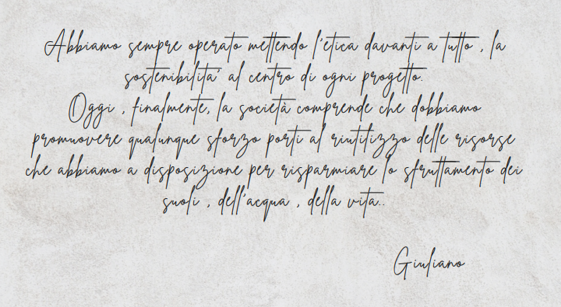 Abbiamo sempre operato mettendo l'etica davanti a tutto , la
sostenibilita' al centro di ogni progetto.
Oggi , finalmente, la società comprende che dobbiamo
promuovere qualunque sforzo porti al riutilizzo delle risorse
che abbiamo a disposizione per risparmiare lo sfruttamento dei
suoli , dell'acqua , della vita..
Giuliano